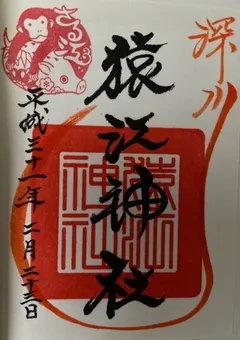 深川
猿江神社
さるえ
猿江神社
平成三十一年 二月二十三日